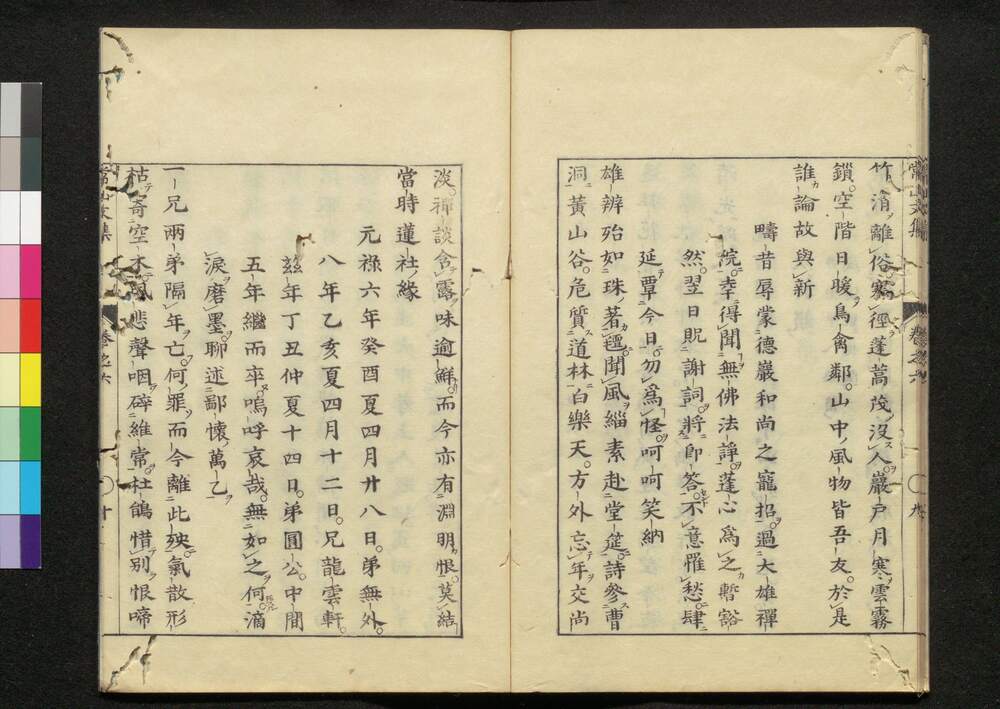 竹ノ消離俗寡徑ヲ蓬蒿茂沒人ヲ巖戸月寒雲霧
鎖空階日暖鳥禽鄰山中ノ風物皆吾友於是
誰カ論故與新
疇昔辱蒙德巖和尚之寵招過大雄禪
院幸得聞無佛法諍蓬心爲之暫豁
然翌日貺謝詞將卽答不意罹愁肆
延覃今日勿爲怪呵呵笑納
雄辨殆如珠ノ著䪼聞風緇素赴堂筵詩參曹
洞黃山谷危質道林白樂天方外忘年交尚
淡禪談含露味逾鮮而今亦有淵明恨莫結
當時蓮社緣
元祿六年癸酉夏四月廿八日弟無外
八年乙亥夏四月十二日兄龍雲軒
茲年丁丑仲夏十四日弟圓公中間
五年繼而卒嗚呼哀哉無如之何滴
淚磨墨聊述鄙懷萬乙
一兄兩弟隔年亡何ノ罪而今離此殃氣散形
枯寄空木風悲聲咽碎維常杜鵑惜別恨啼
常山文集
卷之六
九
常山文集
卷之六
十